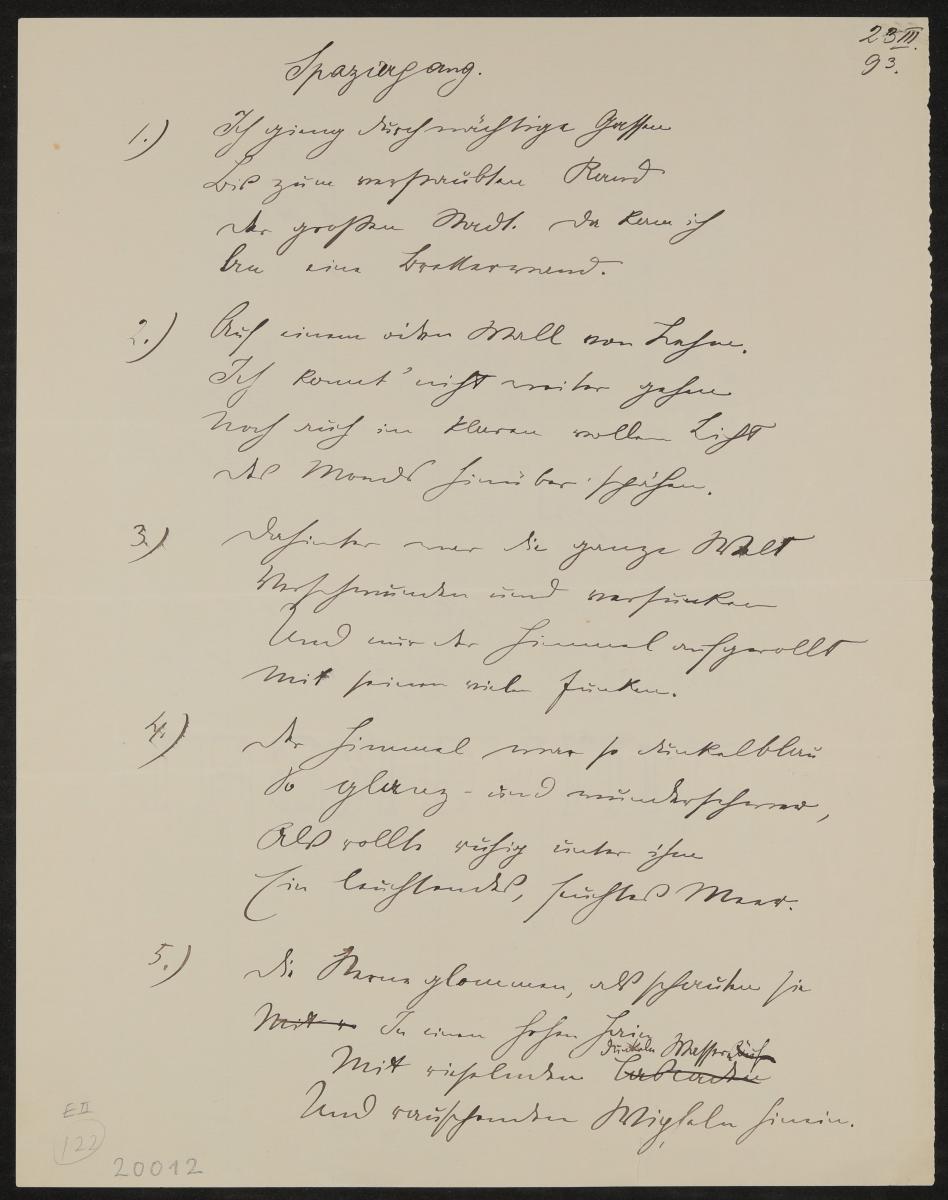 23 III.
93.
Spaziergang.
1.) Ich gieng durch nächtige Gassen
Bis zum verstaubten Rand
Der großen Stadt. Da kam ich
An eine Bretterwand.
2.) Auf einem öden Wall von Lehm.
Ich konnt' nicht weiter gehen
Noch auch im klaren vollen Licht
Des Monds hinüber spähen.
3.) Dahinter war die ganze Welt
Verschwunden und versunken
Und nur der Himmel aufgerollt
Mit seinen vielen Funken.
4.) Der Himmel war so dunkelblau
So glanz- und wunderschwer,
Als rollte ruhig unter ihm
Ein leuchtendes, feuchtes Meer.
5.) Die Sterne glommen, als schauten sie
Mit v In einen hohen Hain
dunkeln Wassern auf
Mit rieselnden Cascaden
Und rauschenden Wipfeln hinein.
E II
122
20012